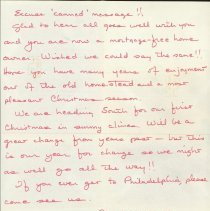 Excuse 'canned' message!!
Glad to hear all goes well with you
and you are now a mortgage-free home
owner. Wished we could say the same!!
Hope you have many years of enjoyment
out of the old homestead and a most
pleasant Christmas season.
We are heading South for our first
Christmas in sunny climes. Will be a
great change from years past - but this
is our year for change so we might
as well go all the way!!
If you ever get to Philadelphia please
come see us.